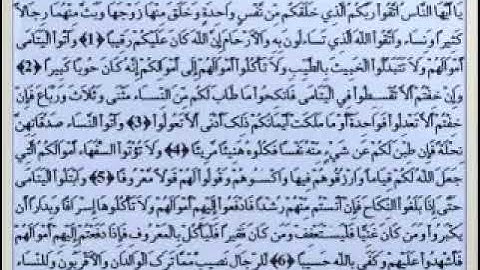 يَا أَيُّهَا النَّاسُ اتَّقُوا رَبَّكُمُ الَّذِي خَلَقَكُم مِّن نَّفْسٍ وَاحِدَةٍ وَخَلَقَ مِنْهَا زَوْجَهَا وَبَثَّ مِنْهُمَا رِجَالًا
كَثِيرًا وَنِسَاءً وَاتَّقُوا اللَّهَ الَّذِي تَسَاءَلُونَ بِهِ وَالْأَرْحَامَ إِنَّ اللَّهَ كَانَ عَلَيْكُمْ رَقِيبًا ﴿1﴾ وَآتُوا الْيَتَامَى
أَمْوَالَهُمْ وَلَا تَتَبَدَّلُوا الْخَبِيثَ بِالطَّيِّبِ وَلَا تَأْكُلُوا أَمْوَالَهُمْ إِلَى أَمْوَالِكُمْ إِنَّهُ كَانَ حُوبًا كَبِيرًا ﴿2﴾
وَإِنْ خِفْتُمْ أَلَّا تُقْسِطُوا فِي الْيَتَامَى فَانكِحُوا مَا طَابَ لَكُم مِّنَ النِّسَاءِ مَثْنَى وَثُلَاثَ وَرُبَاعَ فَإِنْ
خِفْتُمْ أَلَّا تَعْدِلُوا فَوَاحِدَةً أَوْ مَا مَلَكَتْ أَيْمَانُكُمْ ذَلِكَ أَدْنَى أَلَّا تَعُولُوا ﴿3﴾ وَآتُوا النِّسَاءَ صَدُقَاتِهِنَّ
نِحْلَةً فَإِن طِبْنَ لَكُمْ عَن شَيْءٍ مِّنْهُ نَفْسًا فَكُلُوهُ هَنِيئًا مَّرِيئًا ﴿4﴾ وَلَا تُؤْتُوا السُّفَهَاءَ أَمْوَالَكُمُ الَّتِي
جَعَلَ اللَّهُ لَكُمْ قِيَامًا وَارْزُقُوهُمْ فِيهَا وَاكْسُوهُمْ وَقُولُوا لَهُمْ قَوْلًا مَّعْرُوفًا ﴿5﴾ وَابْتَلُوا الْيَتَامَى
حَتَّى إِذَا بَلَغُوا النِّكَاحَ فَإِنْ آنَسْتُم مِّنْهُمْ رُشْدًا فَادْفَعُوا إِلَيْهِمْ أَمْوَالَهُمْ وَلَا تَأْكُلُوهَا إِسْرَافًا وَبِدَارًا أَن
يَكْبَرُوا وَمَن كَانَ غَنِيًّا فَلْيَسْتَعْفِفْ وَمَن كَانَ فَقِيرًا فَلْيَأْكُلْ بِالْمَعْرُوفِ فَإِذَا دَفَعْتُمْ إِلَيْهِمْ أَمْوَالَهُمْ
فَأَشْهِدُوا عَلَيْهِمْ وَكَفَى بِاللَّهِ حَسِيبًا ﴿6﴾ لِّلرِّجَالِ نَصِيبٌ مِّمَّا تَرَكَ الْوَالِدَانِ وَالْأَقْرَبُونَ وَلِلنِّسَاءِ